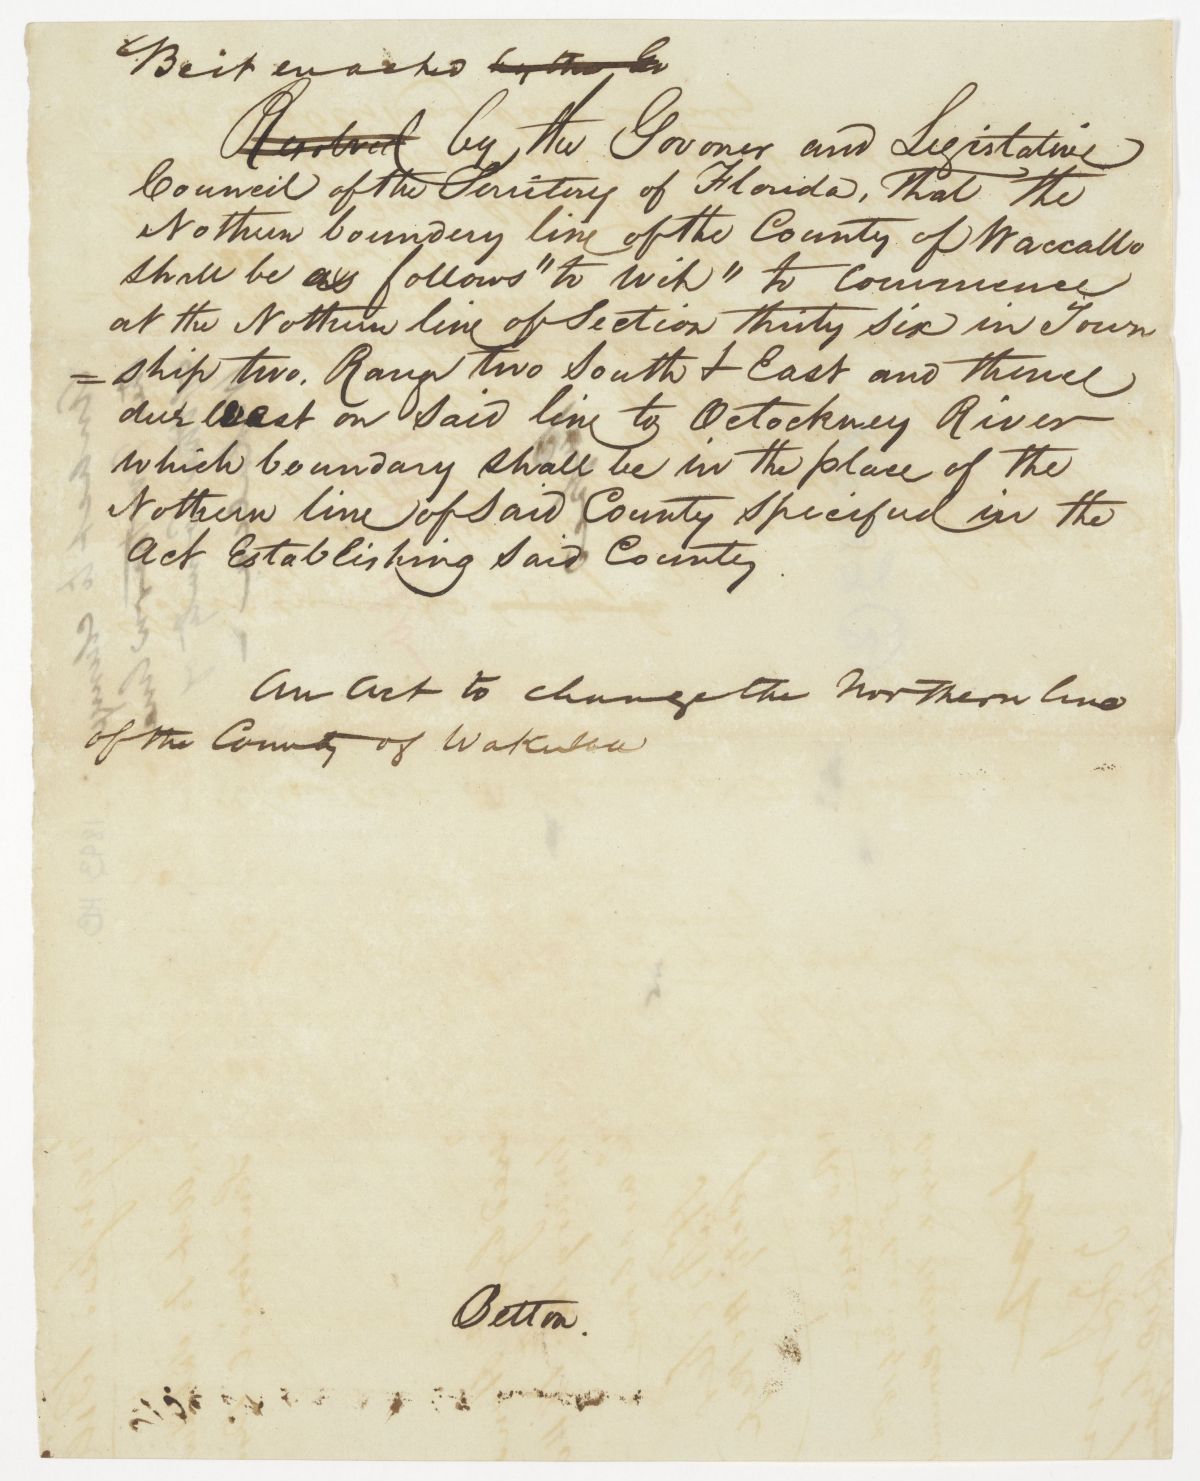 Be it enacted by the Go
Resolved by the Govoner and Legistative
Council of the Territory of Florida, that the
Nothern boundery line of the County of Waccallo
shall be as follows "to wit" to commence
at the Nothern line of Section thirty six in Town
= ship two. Range two South & East and thence
due west on said line to Octockney River
which boundary shall be in the place of the
Nothern line of said County specified in the
Act Establishing said County.
An Act to change the Northern line
of the County of Wakulla
Betton.